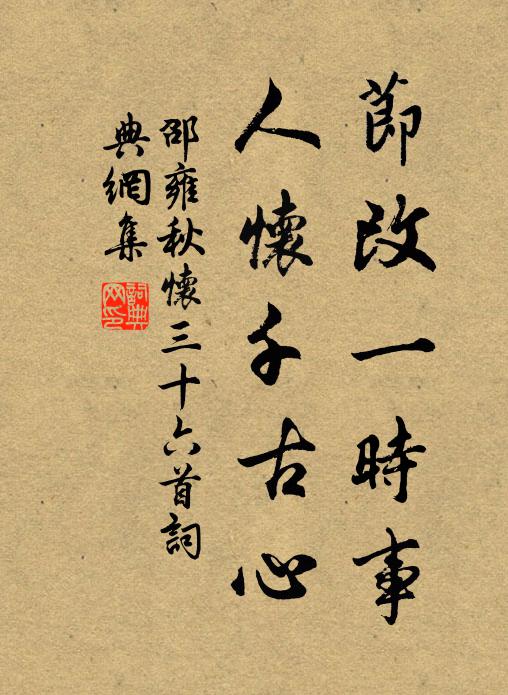 節改一時事
人懷千古心
邵雍秋懷三十六首詞
典網集
詞典網印